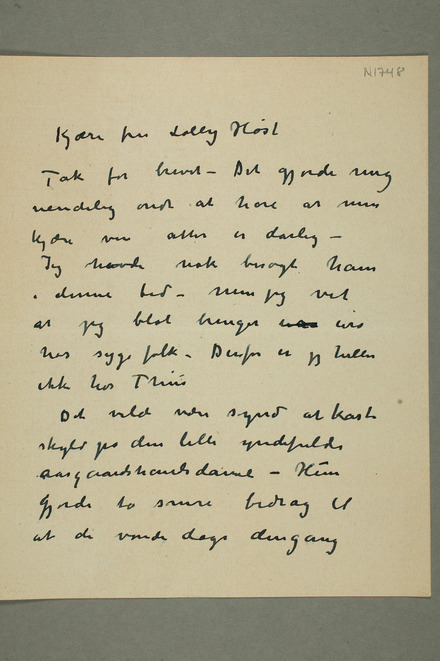 N1748
Kjære fru Dolly Høst
Tak for brevet – Det gjorde mig
uendelig ondt at høre at min
kjære ven atter er darlig –
Jeg havde nok besøgt ham
i denne tid – men jeg vet
at jeg blot bringer uro
hos syge folk – Derfor er jeg heller
ikke hos Thiis
Det vilde være synd at kaste
skyld på den lille yndefulde
aasgaardstrandsdamme – Hun
gjorde to smvre bedrag til
at de vonde dage dengang